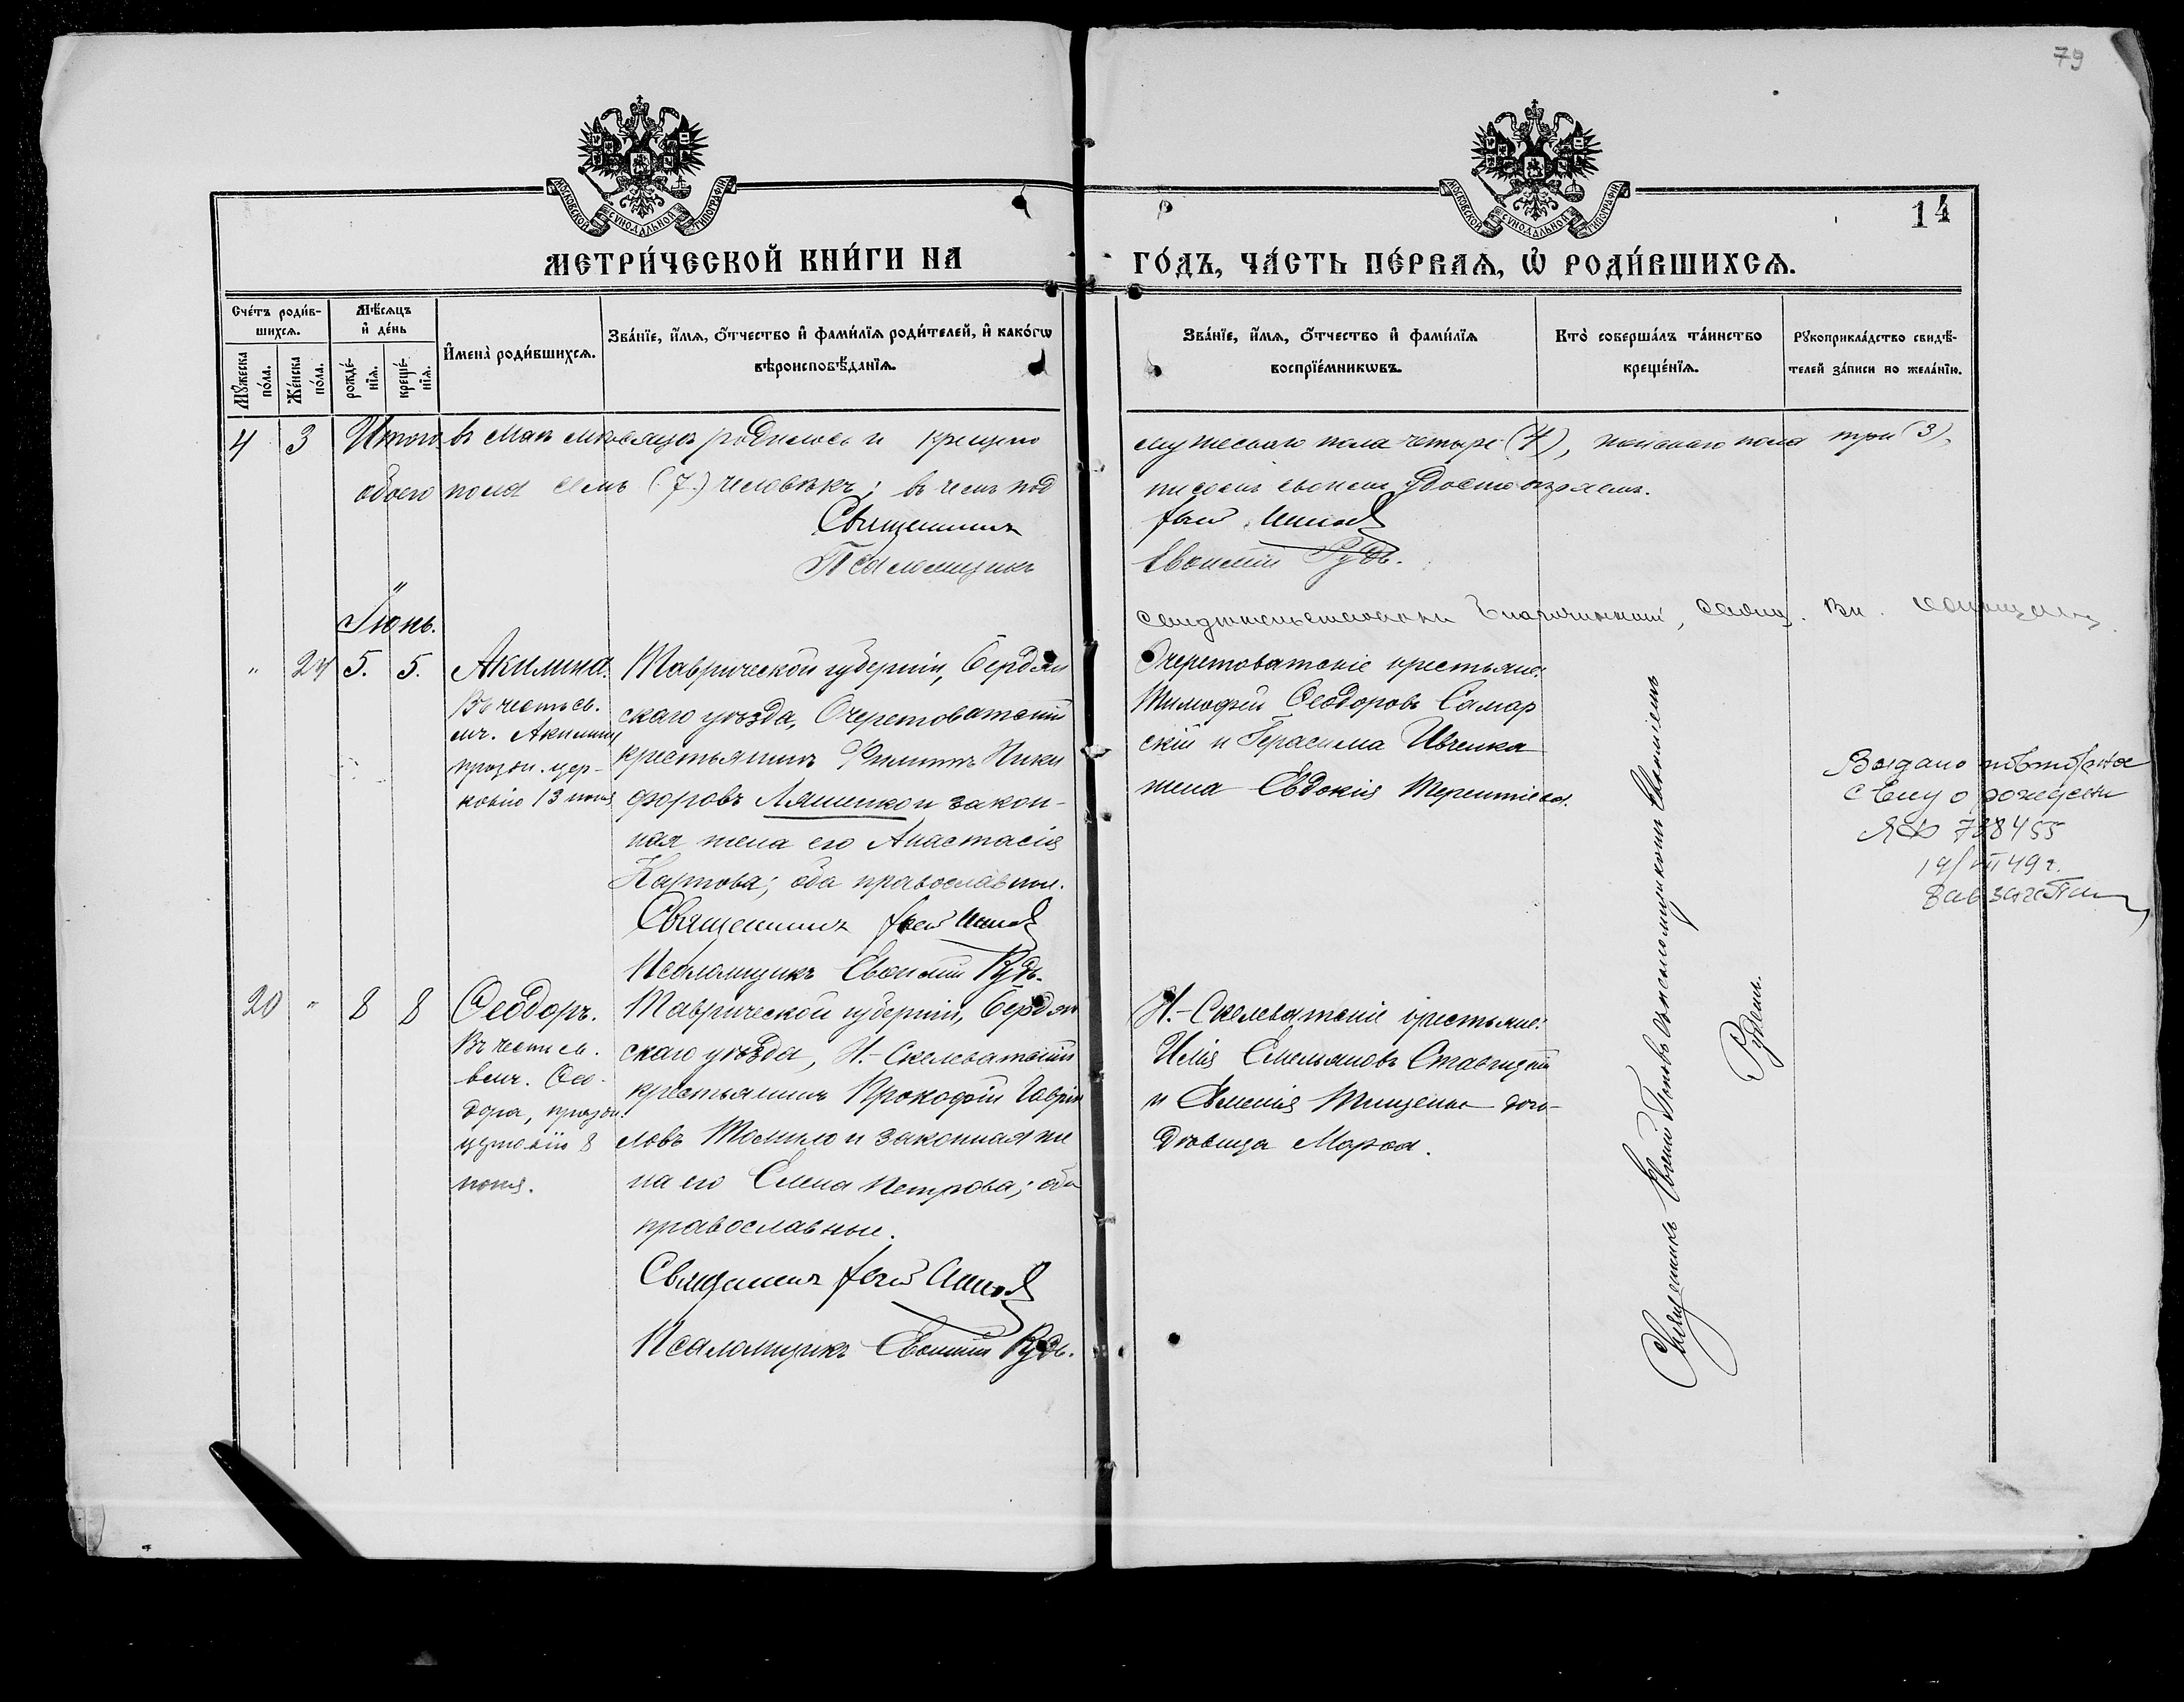 79
МОСКОВСКОЙ СѴНОДАЛЬНОЙ ТИПОГРАФІИ
МОСКОВСКОЙ СѴНОДАЛЬНОЙ ТИПОГРАФІИ
14
МЕТРИ́ЧЕСКОЙ КНИ́ГИ НА
ГО́ДЪ, ЧА́СТЬ ПЕ́РВАѦ, Ѽ РОДИ́ВШИХСѦ.
Сче́тъ роди́в-
шихсѧ.
Мꙋ́жеска
по́ла.
Же́нска
по́ла.
Мѣ́сѧцъ
и҆ де́нь
рожде́-
нїѧ.
креще́-
нїѧ.
И҆мена̀ роди́вшихсѧ.
Зва́нїе, и҆́мѧ, ѻ҆́тчество и҆ фами́лїѧ роди́телей, и҆ како́гѡ
вѣроисповѣ́данїѧ.
Зва́нїе, и҆́мѧ, ѻ҆́тчество и҆ фами́лїѧ
воспрїе́мникѡвъ.
Кто̀ соверша́лъ та́инство
креще́нїѧ.
Рꙋкоприкла́дство свидѣ́-
телей за́писи по жела́нїю.
4 3 Итого въ маѣ мѣсяцѣ родилось и крещено
обоего пола семь (7) человѣкъ; въ чемъ под
Священникъ
Псаломщикъ
мужескаго пола четыре (4), женскаго пола три (3),
писомъ своимъ удостовѣряемъ.
Евѳимій Рудь.
Іюнь.
" 24 5. 5. Акилина.
Въ честь св.
мч. Акилины
праздн. цер-
ковію 13 іюня
Таврической губерніи, Бердян
скаго уѣзда, Очеретоватскій
крестьянинъ Филиппъ Ники
форовъ Ляшенко и закон-
ная жена его Анастасія
Карпова; оба православные.
Священникъ
Псаломщикъ Евѳимій Рудь.
Очеретоватскіе крестьяне:
Тимофей Ѳеодоровъ Самар
скій и Герасима Ивченка
жена Евдокія Терентіева.
Выдано повторное
с-во о рождении
ЯФ 788455
49 г.
20 " 8 8 Ѳеодоръ.
Въ честь св.
велч. Ѳео-
дора, праздн.
церковію 8
іюня.
Таврической губерніи, Бердян
скаго уѣзда, Н.-Скелеватскій
крестьянинъ Прокофій Гаврі
ловъ Томило и законная же
на его Елена Петрова; оба
православные.
Священникъ
Псаломщикъ Евѳимій Рудь.
Н.-Скелеватскіе крестьяне:
Илія Емельяновъ Ставицкій
и Тищенко дочь
дѣвица Марѳа.
Священникъ Поповъ съ псаломщикомъ Евѳиміемъ
Рудемъ.